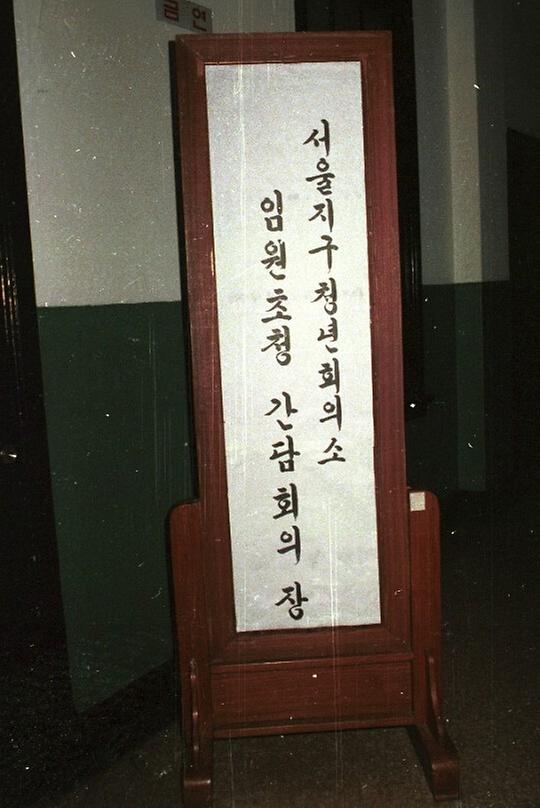 금연
서울지구청년회의소
임원초청 간담회의 장